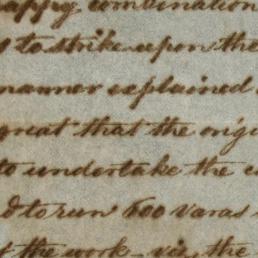 appy combination
to strike upon the
manner explained
great that the origi
to undertake the e
d to run 600 varas
t the work, viz, the